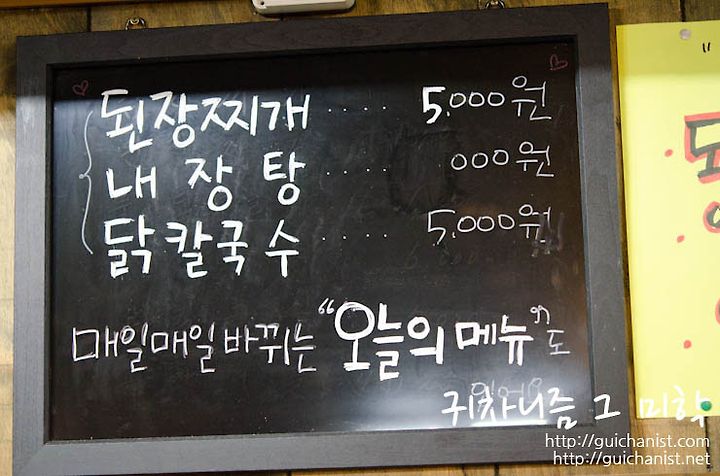 된장찌개 ···· 5.000원
내장탕 ···· 000원
닭칼국수 ···· 5.000원
매일매일 바뀌는 "오늘의 메뉴"도
귀차니즘 그 미학
http://guichanist.com
http://guichanist.net